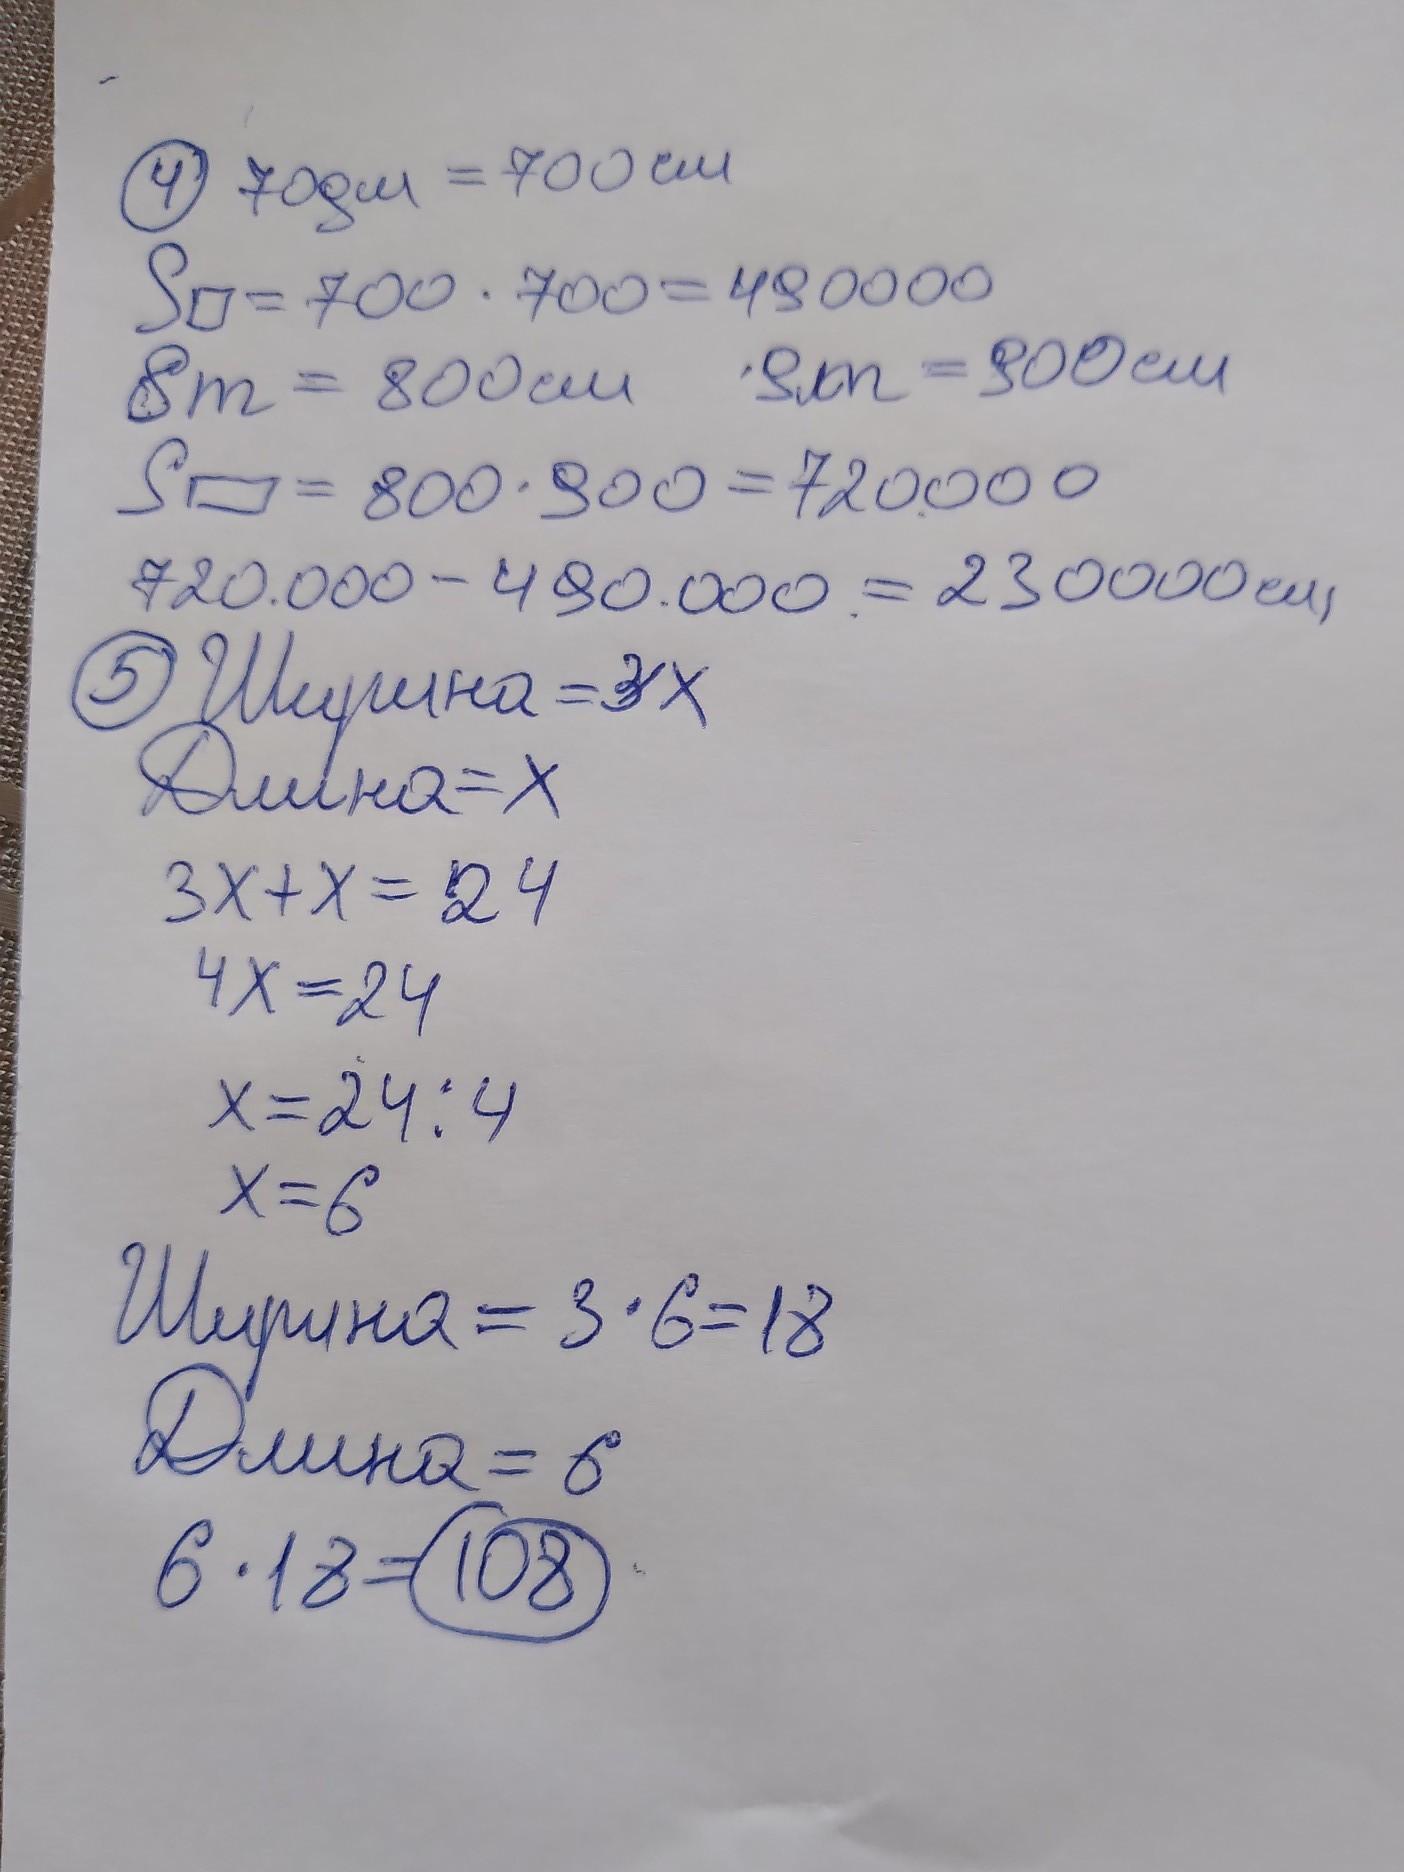 ④ 70дм = 700см
S▱ = 700 · 700 = 490000
8m = 800см 9m = 900см
S▭ = 800 · 900 = 720000
720.000 - 490.000 = 230000см,
⑤ Ширина = 3x
Длина = x
3x + x = 24
4x = 24
x = 24 : 4
x = 6
Ширина = 3 · 6 = 18
Длина = 6
6 · 18 = 108